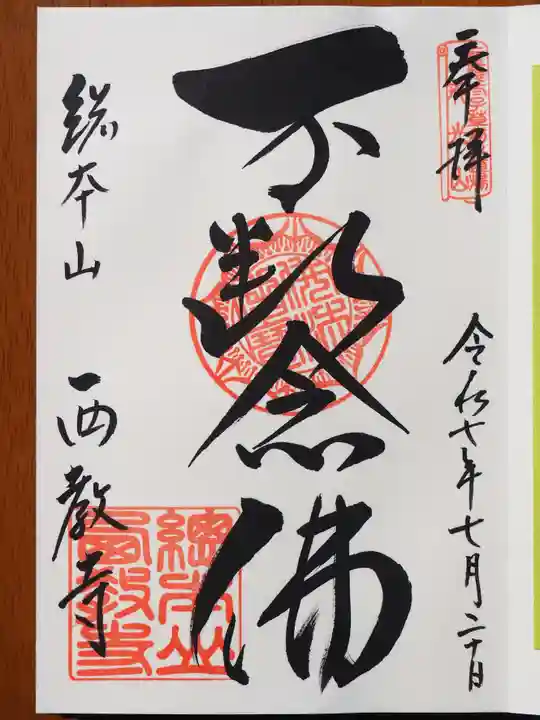 奉拝
令和七年七月二十日
不断念佛
総本山
西教寺
總本山
西教寺